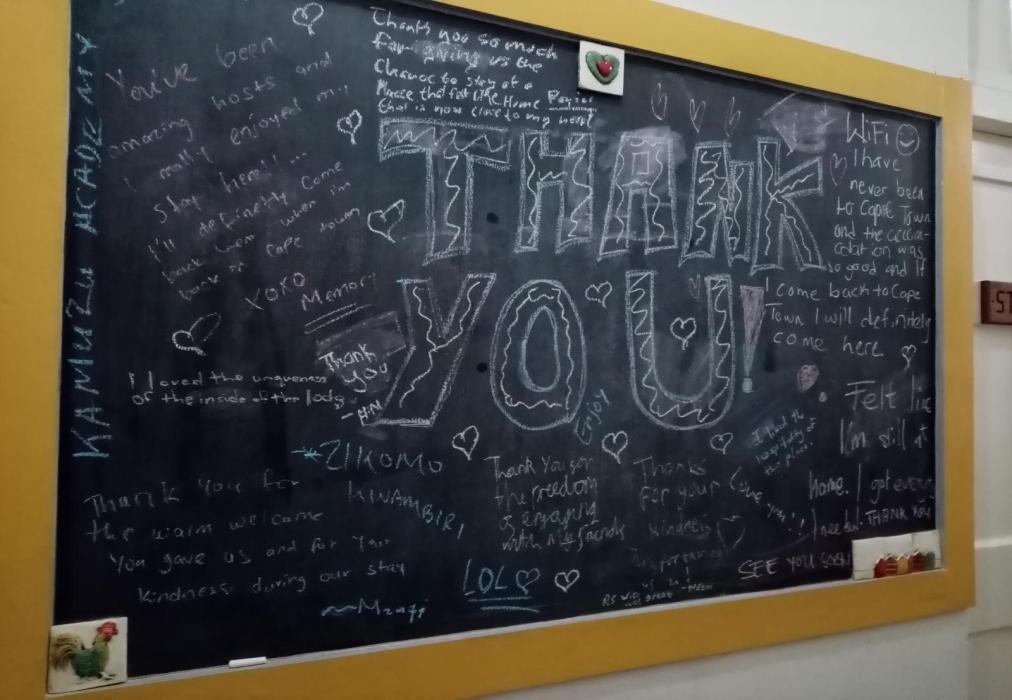 KAMUZU ACADEMY
You've been
amazing hosts and
I really enjoyed my
stay here!...
I'll definetly come
back here when I'm
back in Cape town
XOXO
Memory
Thank you so much
for giving us the
Chance to stay at a
House that felt like Home
that is now close to my heart
THANK
YOU!
WiFi
I have
never been
to Cape Town
and the accom-
odation was
so good and if
I come back to Cape
Town I will definitely
come here
Thank
you
-H.N
I loved the uniqueness
of the inside of the lodge
Enjoy
Felt like
I'm still at
home. I got every
I needed. THANK YOU
*ZIKOMO
KWAMBIRI
Thank You for
the warm welcome
You gave us and for your
kindness during our stay
Thank you for
the freedom
of enjoying
with my friends
LOL
Thanks
for your
kindness
Love you!!
SEE YOU SOON